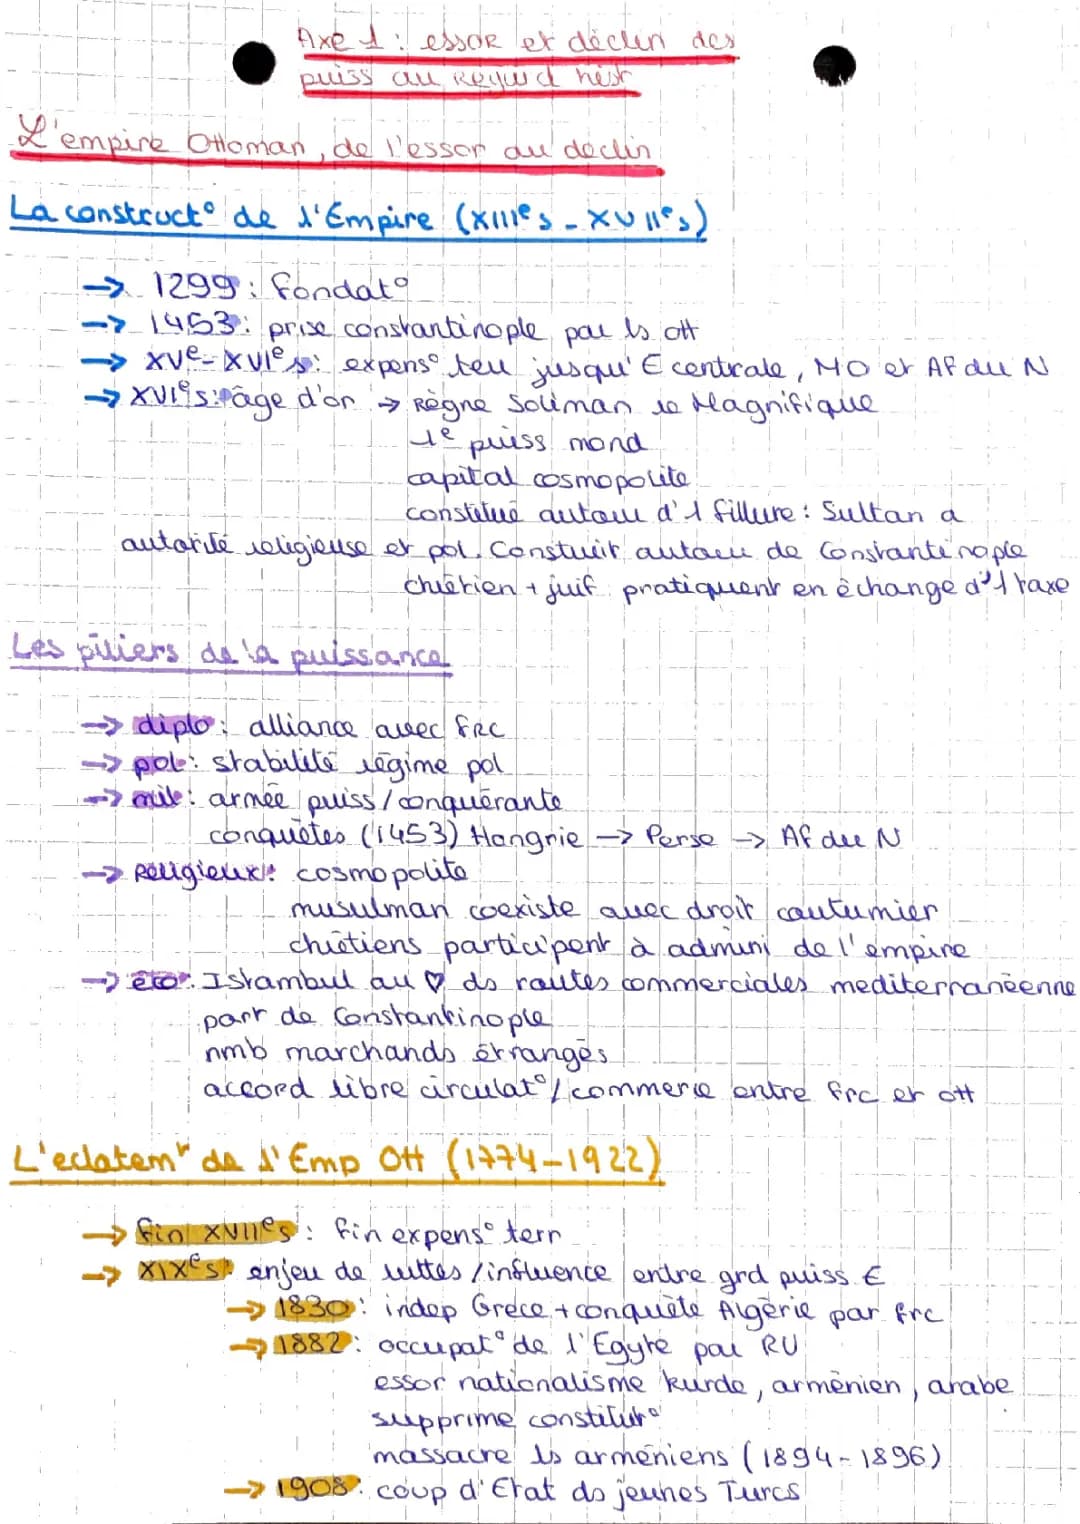 Axe 1 : essor et déclin des
puiss au Regard hist
L'empire Ottoman, de l'essor au déclin
La construct° de l'Empire (XIIIes - XVIIes)
→ 1299 : fondat°
→ 1453 : prise constantinople par ls ott
→ XVe-XVIes : expens° teu jusqu'E centrale, MO et AF du N
→ XVIes : âge d'or → Règne Soliman le Magnifique
1e puiss mond
capital cosmopolite
constitué autour d'1 fillure : Sultan a
autorité religieuse et pol. Constuit autour de Constantinople
chrétien + juif pratiquent en échange d'1 taxe
Les piliers de la puissance
→ diplo : alliance avec frc
→ pol : stabilité régime pol
→ mil : armée puiss/conquérante
conquêtes (1453) Hongrie → Perse → Af du N
→ Religieux : cosmopolite
musulman coexiste avec droit coutumier
chrétiens participent à admini de l'empire
→ éco : Istambul au ♡ ds routes commerciales mediterranéenne
part de Constantinople
nmb marchands étrangés
accord libre circulat°/commerce entre frc et ott
L'eclatemt de l'Emp Ott (1774-1922)
→ fin XVIIes : fin expens° terr
→ XIXes : enjeu de luttes/influence entre grd puiss €
→ 1830 : indep Grèce + conquête Algérie par frc
→ 1882 : occupat° de l'Egyte par RU
essor nationalisme kurde, arménien, arabe
supprime constitut°
massacre ls arméniens (1894-1896)
→ 1908 : coup d'Etat ds jeunes Turcs